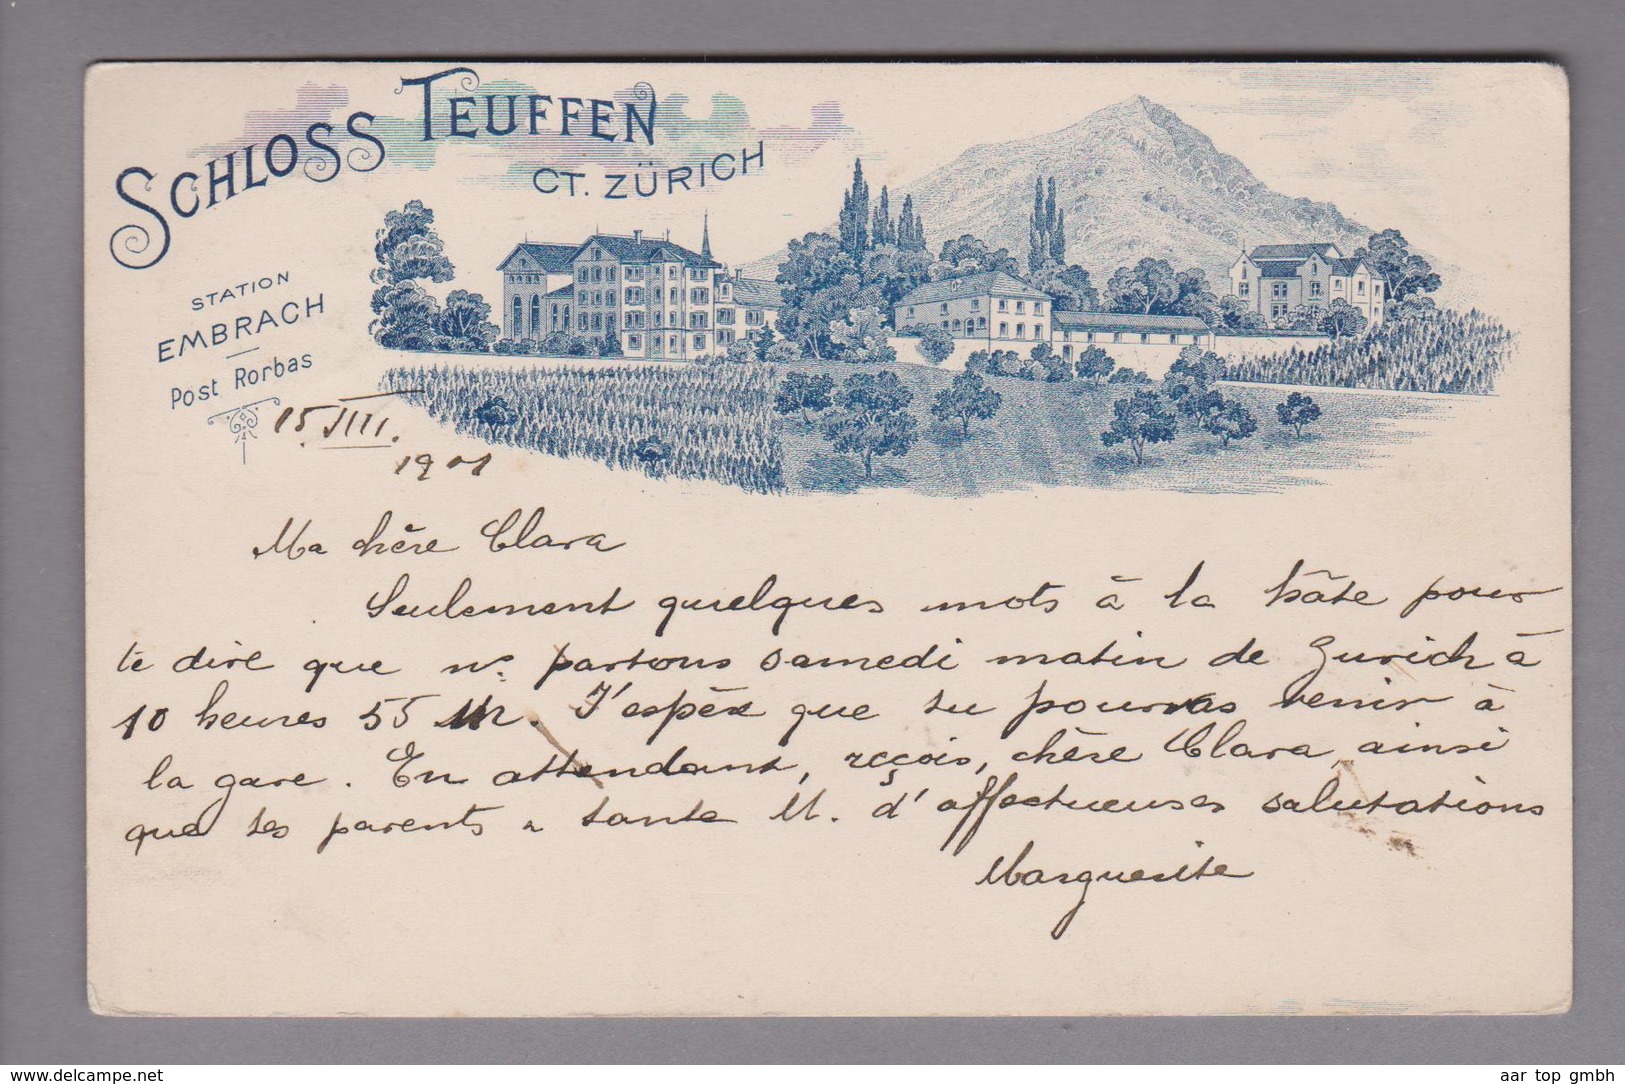 SCHLOSS TEUFFEN
CT. ZÜRICH
STATION
EMBRACH
Post Rorbas
15. VIII.
1901
Ma chère Clara
Seulement quelques mots à la hâte pour
te dire que ns. partons samedi matin de Zurich à
10 heures 55 M. J'espère que tu pourras venir à
la gare. En attendant, reçois, chère Clara, ainsi
que tes parents & tante M. d'affectueuses salutations
Marguerite
www.delcampe.net
aar top gmbh